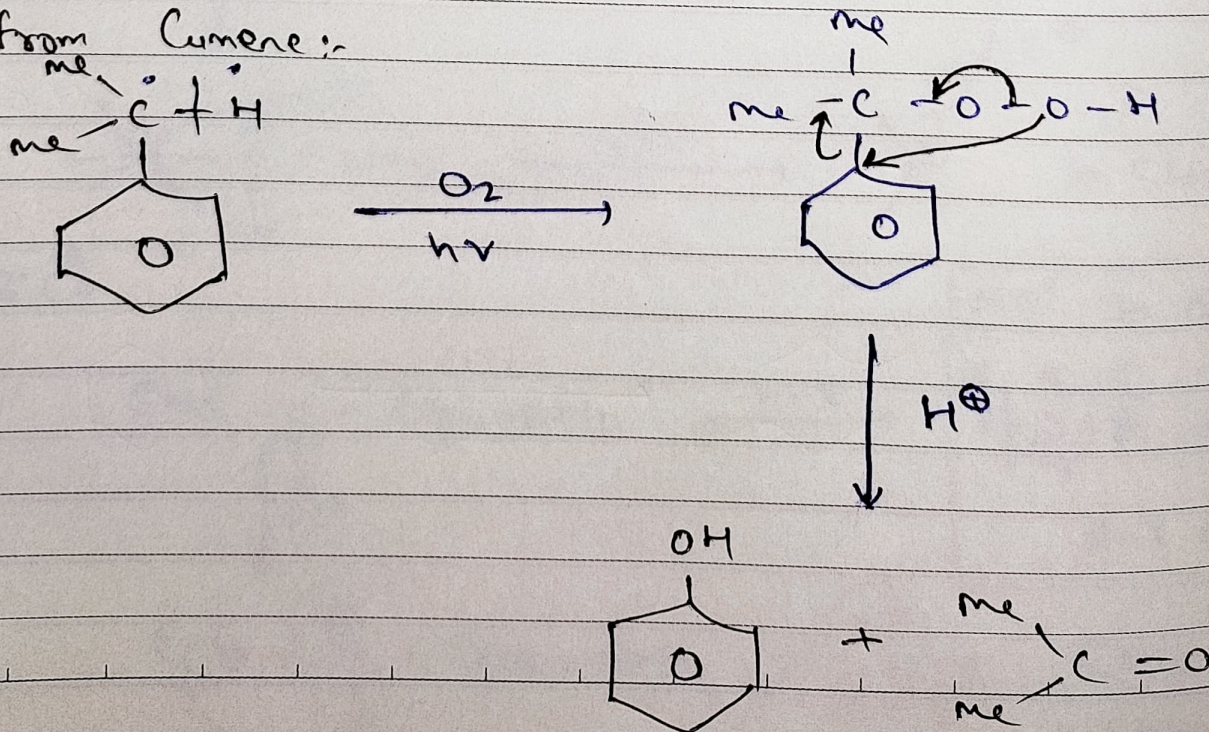 from Cumene:-
me
me
C + H
O
O2
hν
me
me - C - O - O - H
O
H⊕
OH
O
+
me
C = O
me